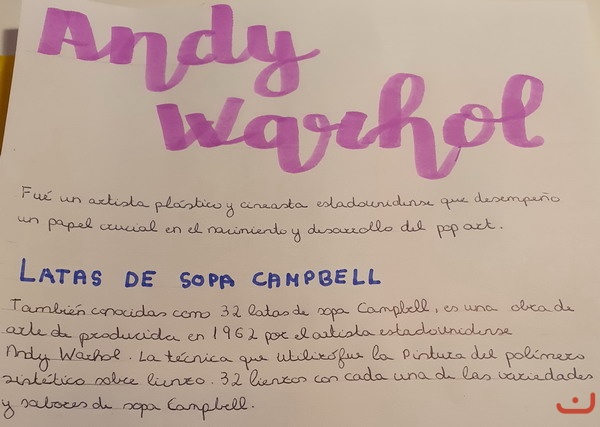 Andy
Warhol
Fué un artista plástico y cineasta estadounidense que desempeño
un papel crucial en el nacimiento y desarrollo del pop art.
LATAS DE SOPA CAMPBELL
También conocidas como 32 latas de sopa Campbell, es una obra de
arte de producida en 1962 por el artista estadounidense
Andy Warhol. La técnica que utilizó fue la Pintura del polímero
sintético sobre lienzo. 32 lienzos con cada una de las variedades
y sabores de sopa Campbell.